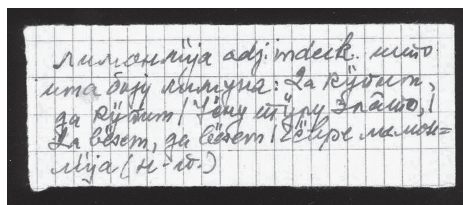 лимонлија adj. indeck. што
има боју лимуна: Да ку̏пим,
да ку̏пим / жену ту̑ру зла̑то, /
Да ве̏зем, да ве̏зем / ћѐпре лимон=
лија (н-т.)